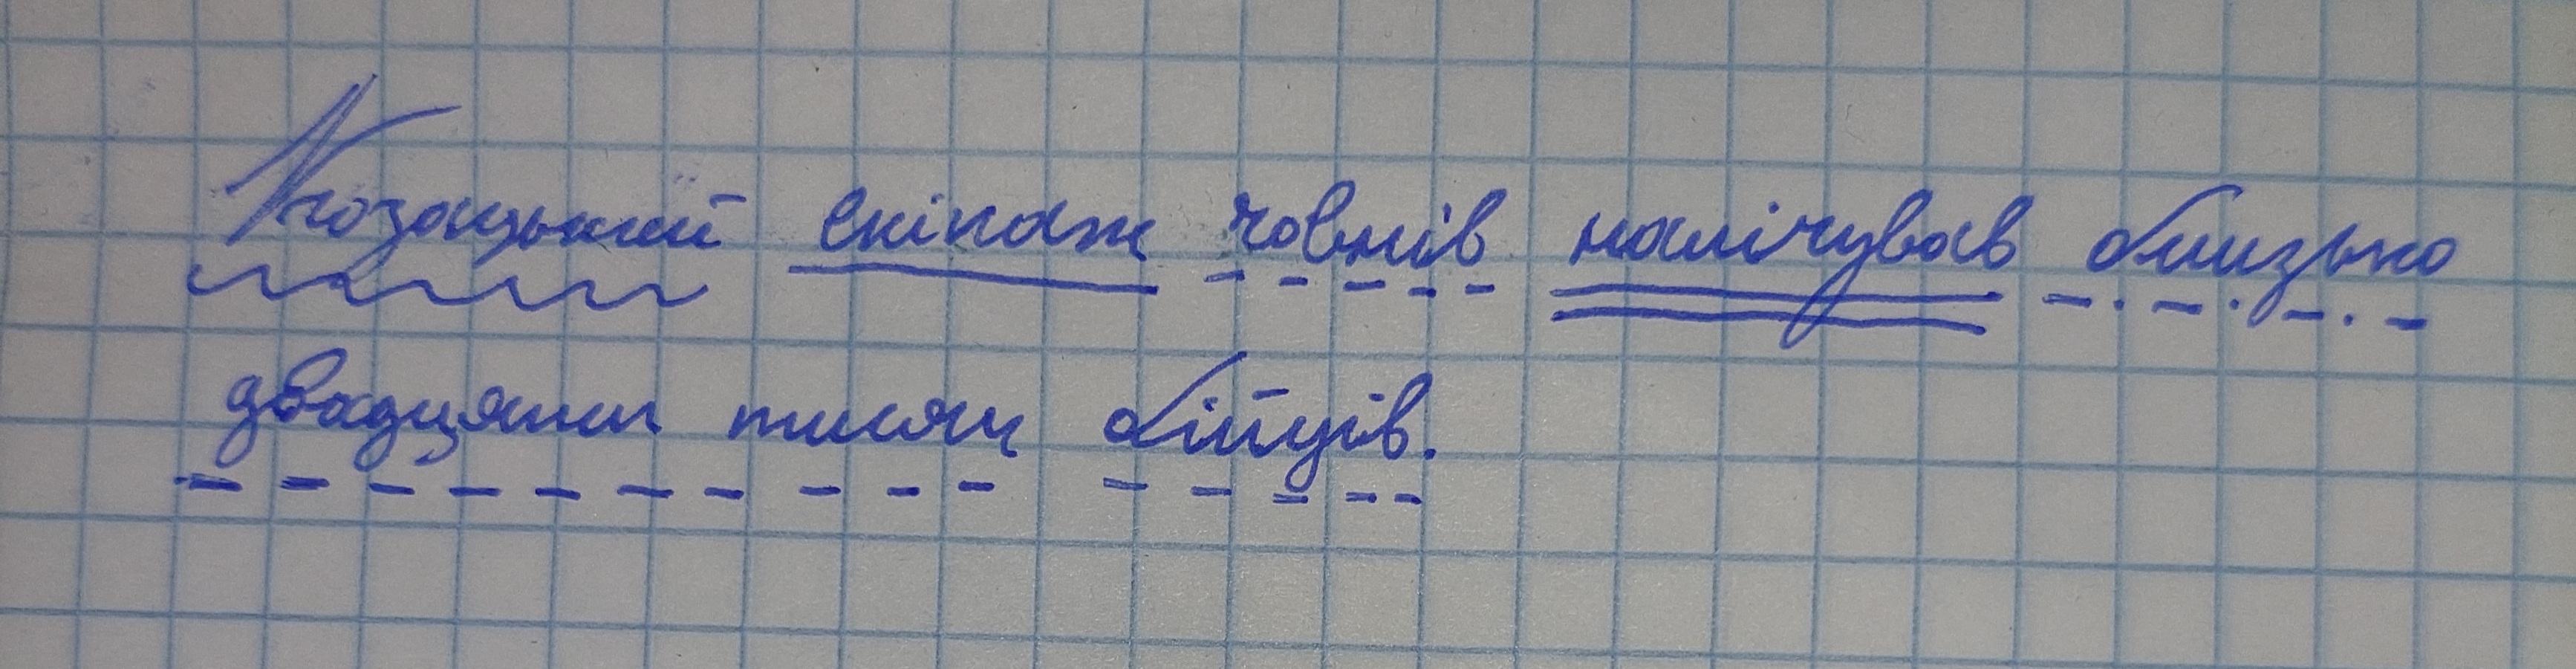 Козацький екіпаж човнів налічував близько
двадцяти тисяч бійців.